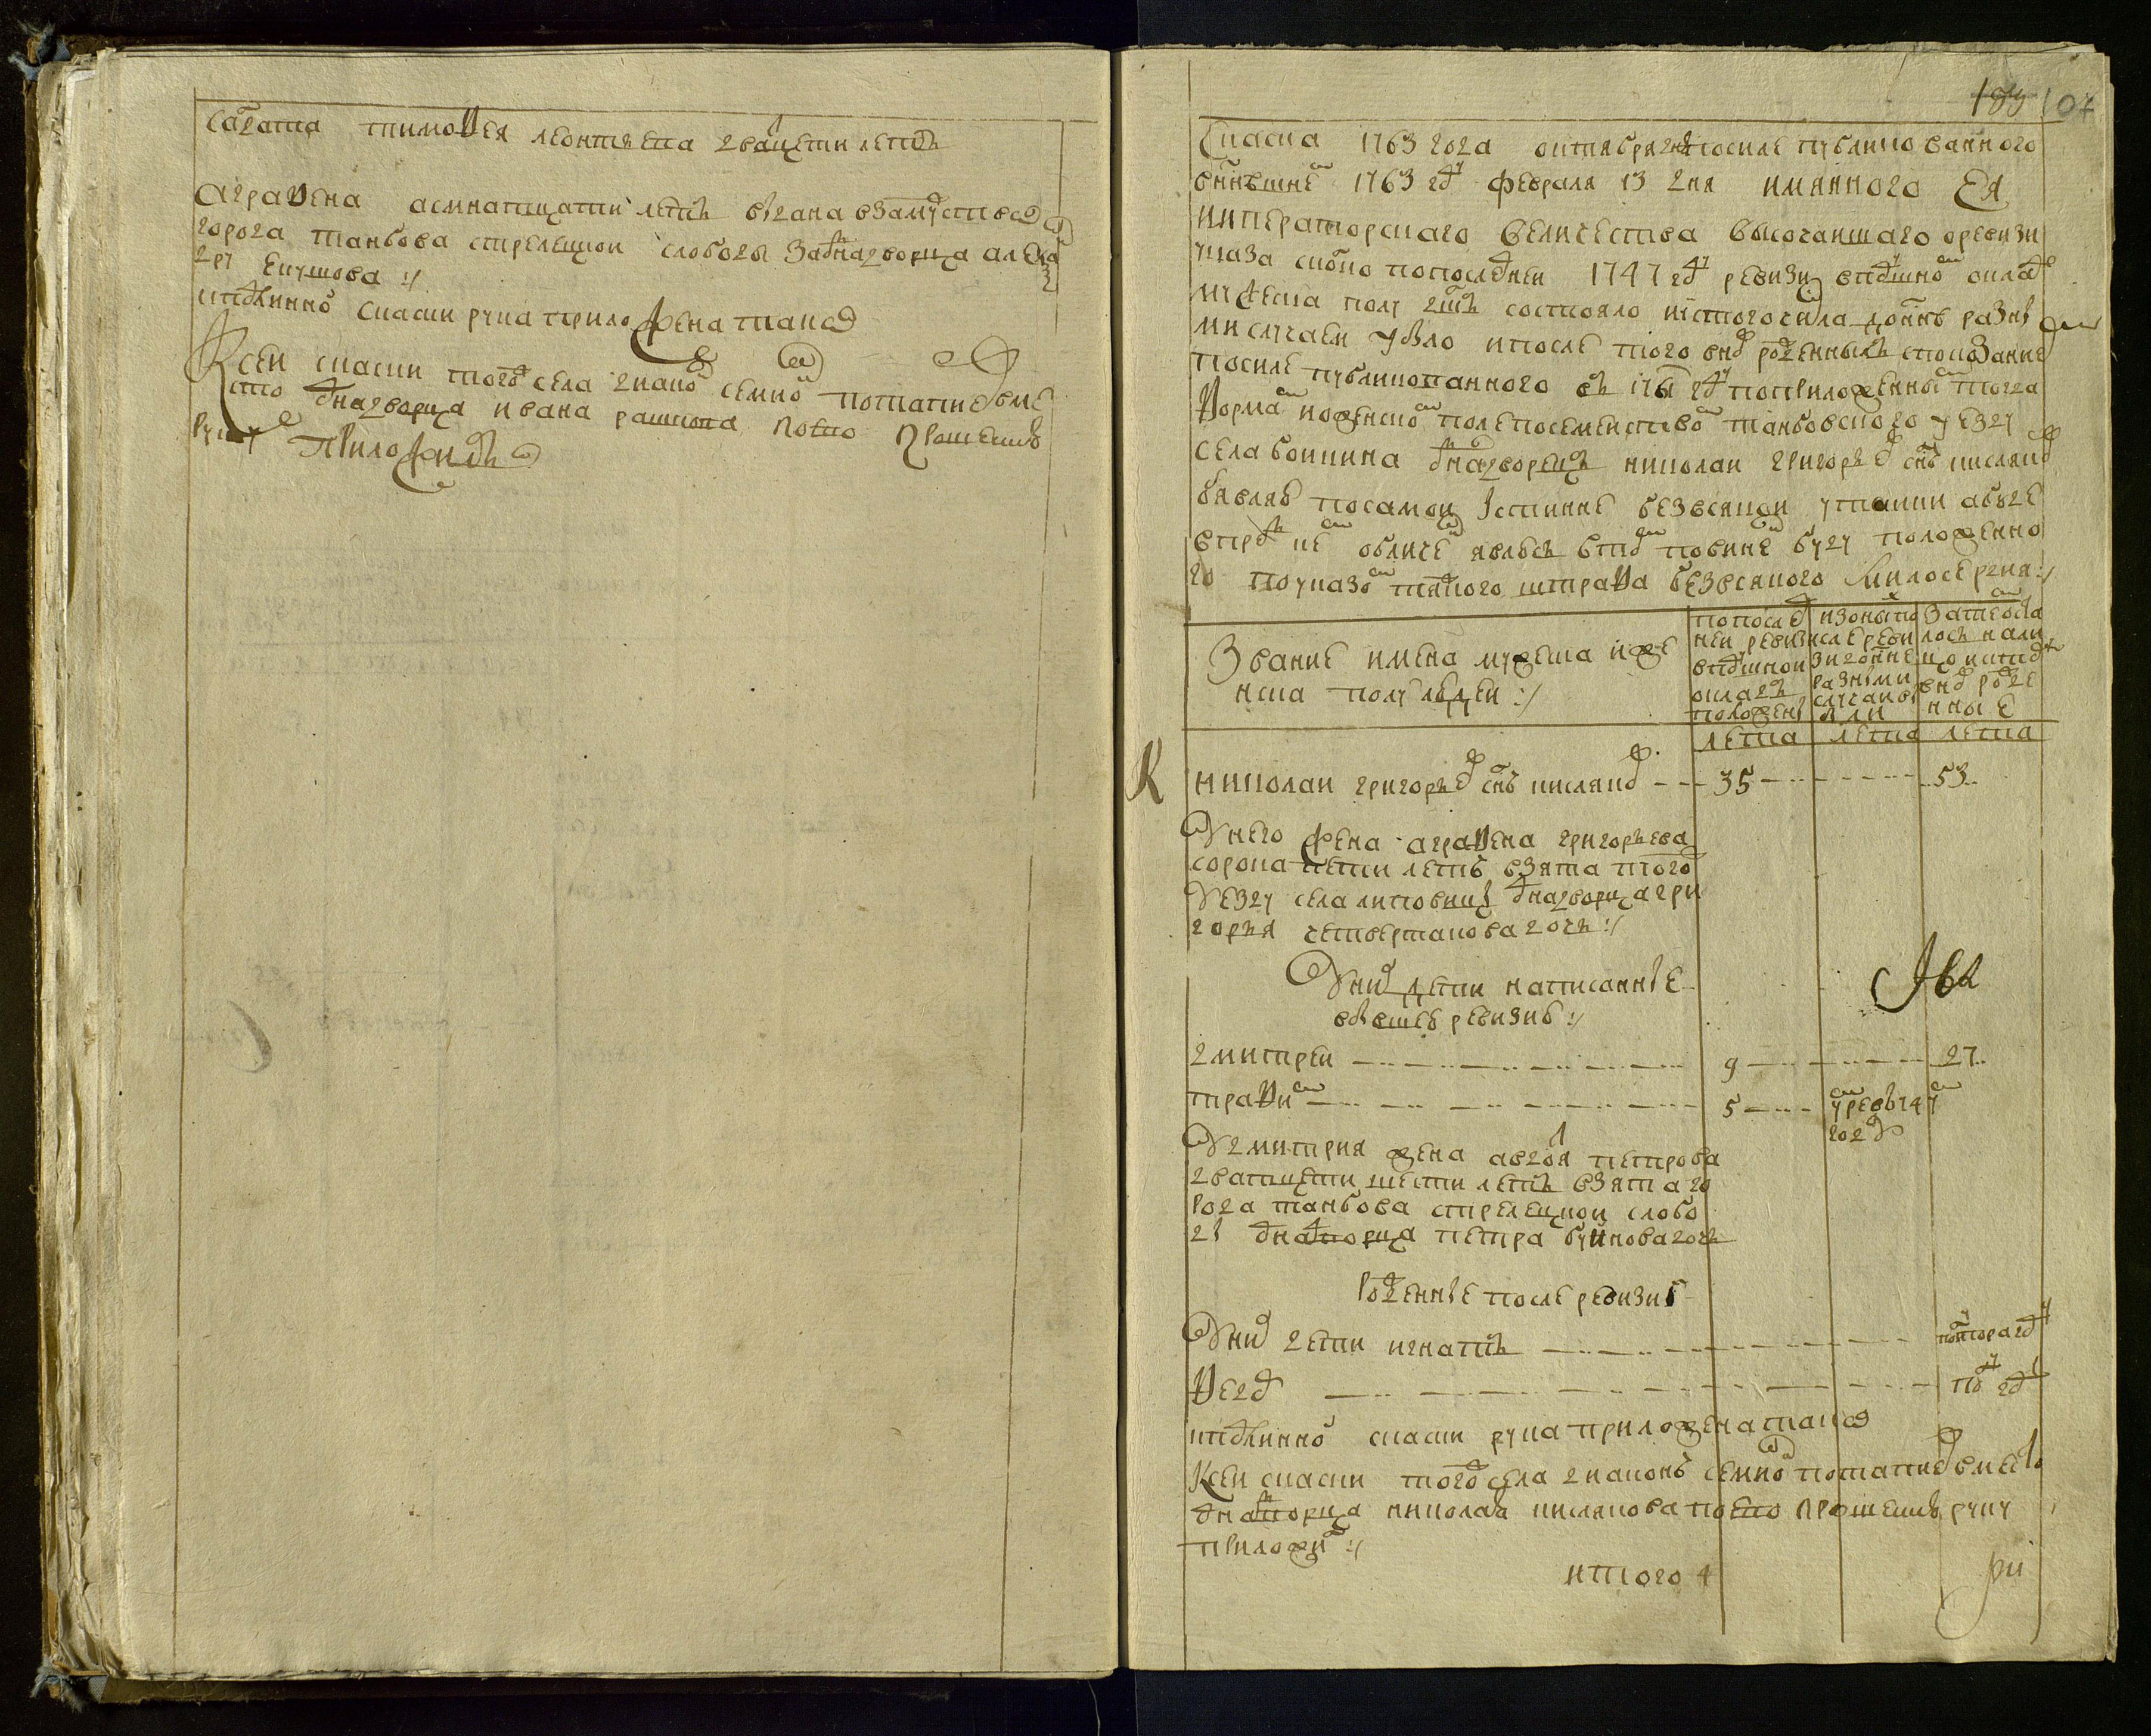 салдата тимофея леонтьева дватцети летъ
аграфена асмнатцати летъ выдана взамуство
города танбова стрелецкой слободы за однадворца алек
дру :/
кподлинно скаски рука приложена тако
К сей скаски того села дьяко семио потапие вме
сто однадворца ивана рашкова поево прошению
руку приложилъ
107
Скаска 1763 года октября дня посиле публикованного
внынешне 1763 году февраля 13 дня имянного Ея
императорскаго величества высочайшаго оревизи
указа сколко попоследнеи 1747 году ревизи вподушно окладе
мужеска полу душъ состояло истого числа доныне разны
ми случаеи убыло ипосле того вно рожденныхъ споказание
посиле публикованного въ 1761 году поприложенны тогда
формамъ иоженско поле посемеиство танбовского уезду
села боишина однадворецъ николаи григорье снъ кисляко
обявляю посамои истинне безвсякои утаики абуде
впредь ке обличе явлюсь втомъ повине буду положенно
го поуказо тяжкого штрафа безвсякого милосердия :/
Звание имена мужеска иже
нска полу людеи :/
попослед
неи ревизи
вподушнои
окладъ
положены
изоныхпо
слереви
зидоне
разными
случаивы
были
Затемоста
лось нали
цо испо
вно рожде
нные
лета лета лета
К
николаи григорье снъ кисляко 35 53
Унего жена аграфена григорьева
сорока пети летъ взята того
Уезду села липовицы однадворца гри
горья четвертакова дочь :/
Уних дети написанные
вбывшею ревизию :/
дмитреи 9 27
трафи 5 умре въ 747
году
Удмитрия жена авдотя петрова
дватцети шести летъ взята го
рода танбова стрелецкои слобо
ды однадворца петра буйнова дочь
Рожденные после ревизии
Уних дети игнатъ полтора году
Федо пол году
кподлинно скаски рука приложена тако
К сеи скаски того села дьяконъ семио потапие вместо
однадворца николая кислякова поево прошению руку
приложи :/
итого 4